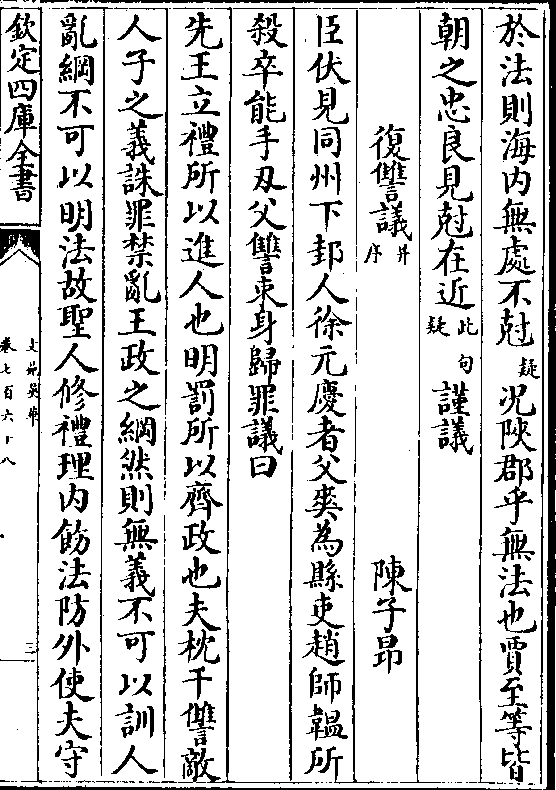 於法則海内無處不尅疑况陝郡乎無法也賈至等皆
朝之忠良見尅在近此句疑謹議
復讐議并序 陳子昂
臣伏見同州下邽人徐元慶者父爽為縣吏趙師韞所
殺卒能手刃父讐束身歸罪議曰
先王立禮所以進人也明罰所以齊政也夫枕干讐敵
人子之義誅罪禁亂王政之綱然則無義不可以訓人
亂綱不可以明法故聖人修禮理内飭法防外使夫守
欽定四庫全書
文苑英華
卷七百六十八
三